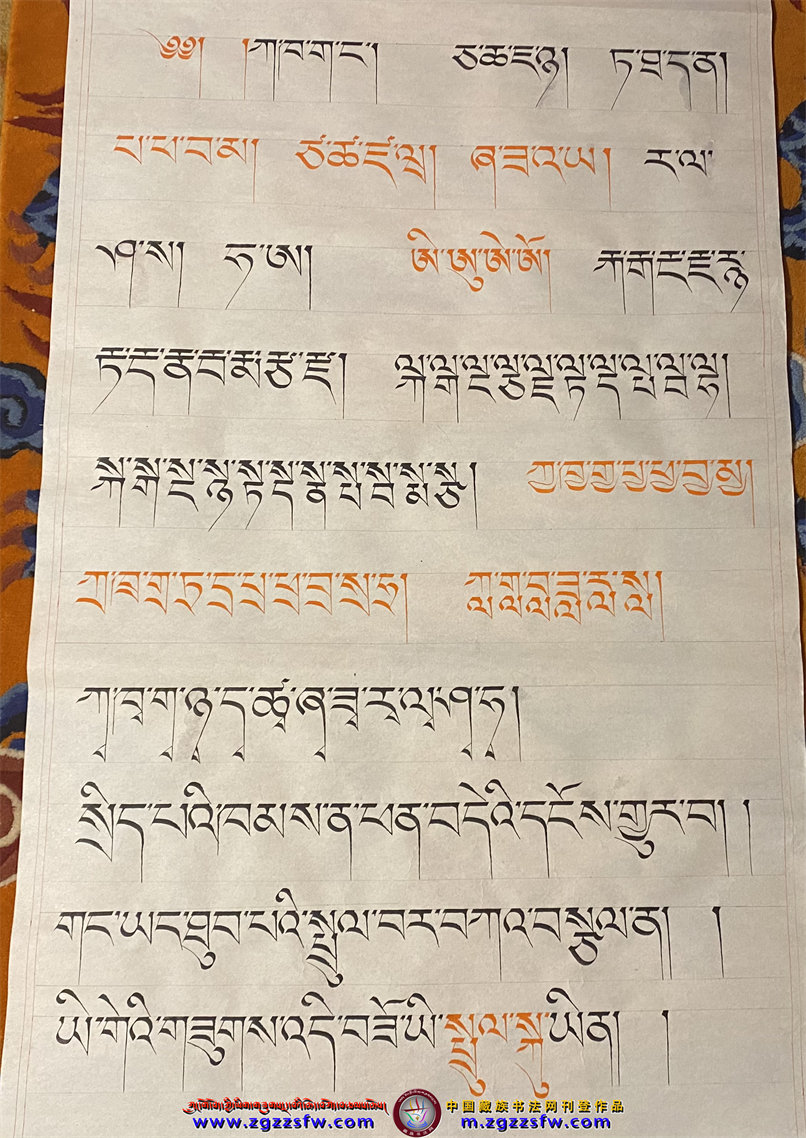 ༄༅། །ཀ་ཁ་ག་ང་། ཅ་ཆ་ཇ་ཉ། ཏ་ཐ་ད་ན།
པ་ཕ་བ་མ། ཙ་ཚ་ཛ་ཝ། ཞ་ཟ་འ་ཡ། ར་ལ་
ཤ་ས། ཧ་ཨ། ཨི་ཨུ་ཨེ་ཨོ། རྐ་རྒ་རྔ་རྗ་རྙ
རྟ་རྡ་རྣ་རྦ་རྨ་རྩ་རྫ། ལྐ་ལྒ་ལྔ་ལྕ་ལྗ་ལྟ་ལྡ་ལྤ་ལྦ་ལྷ།
སྐ་སྒ་སྔ་སྙ་སྟ་སྡ་སྣ་སྤ་སྦ་སྨ་སྩ། ཀྱ་ཁྱ་གྱ་པྱ་ཕྱ་བྱ་མྱ།
ཀྲ་ཁྲ་གྲ་ཏྲ་དྲ་པྲ་ཕྲ་བྲ་སྲ་ཧྲ། ཀླ་གླ་བླ་ཟླ་རླ་སླ།
ཀྭ་ཁྭ་གྭ་ཉྭ་དྭ་ཚྭ་ཞྭ་ཟྭ་རྭ་ལྭ་ཤྭ་ཧྭ།
སྲིད་པའི་ཁམས་ན་ཕན་བདེའི་དངོས་གྱུར་བ། །
གང་ཡང་ཐུབ་པའི་སྤྲུལ་བར་བཀའ་བསྩལ་ན། །
ཡི་གེའི་གཟུགས་འདི་བཟོ་ཡི་སྤྲུལ་སྐུ་ཡིན། །
中国藏族书法网刊登作品
www.zgzzsfw.com m.zgzzsfw.com